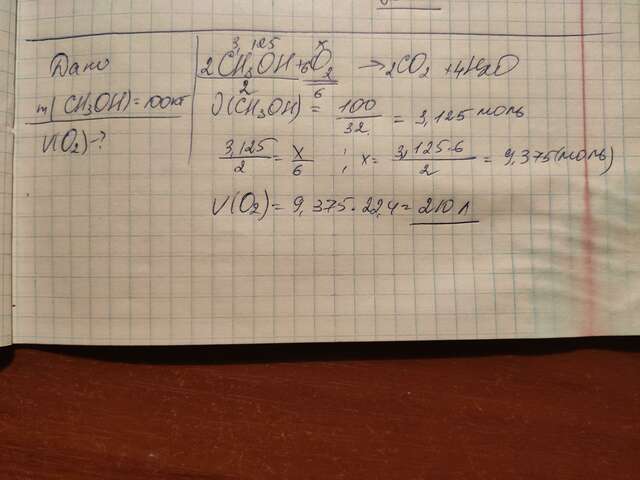 Дано
m(CH3OH)=100кг
V(O2)-?
3,125 x
2CH3OH+6O2 →2CO2 +4H2O
2 6
ν(CH3OH) = 100/32 = 3,125 моль
3,125/2 = x/6 ; x = 3,125·6/2 = 9,375(моль)
V(O2)= 9,375·22,4= 210 л